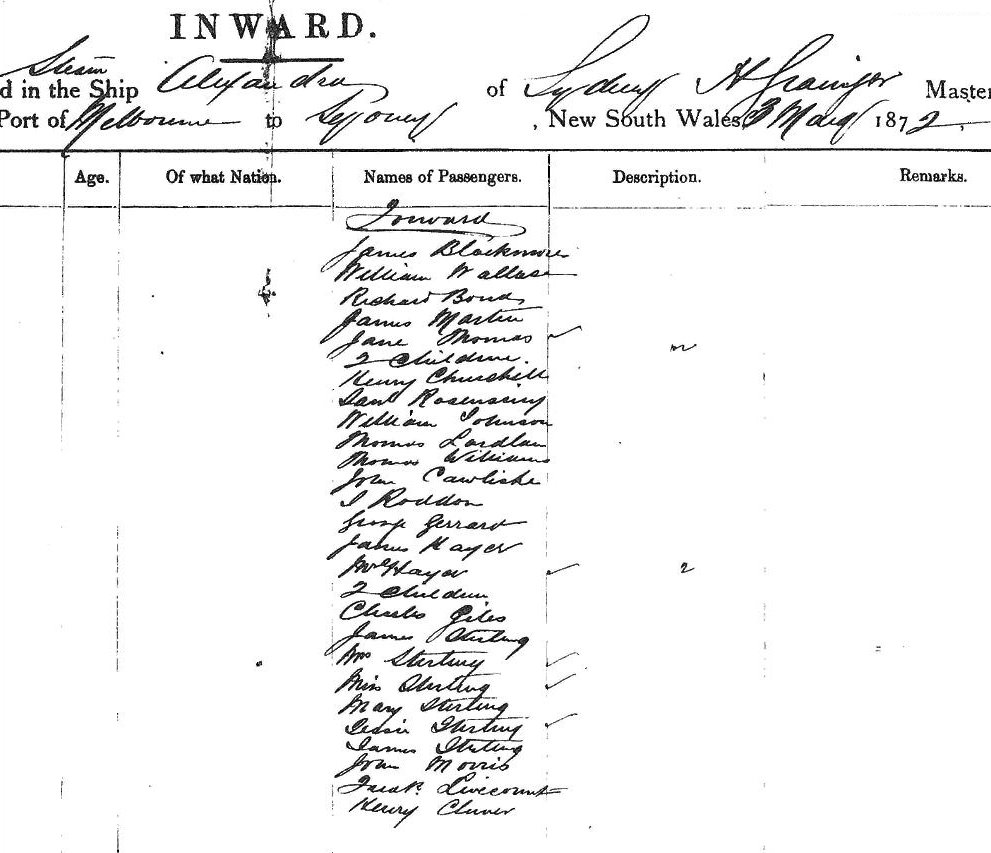 INWARD.
Steam
d in the Ship Alexandra of Sydney H Grainger Master
Port of Melbourne to Sydney, New South Wales 3 May 1872.
Age. Of what Nation. Names of Passengers. Description. Remarks.
Forward
James Blackmore
William Wallace
Richard Bond
James Martin
Jane Thomas
2 Children.
Henry Churchill
William Johnson
Thomas
Thomas Williams
John
J Roddon
George Gerrard
James Hayer
Mrs Hayer 2
2 Children
Charles Giles
James Sterling
Mrs Sterling
Miss Sterling
Mary Sterling
Jessie Sterling
James Sterling
John Morris
Livecount
Henry Cluver